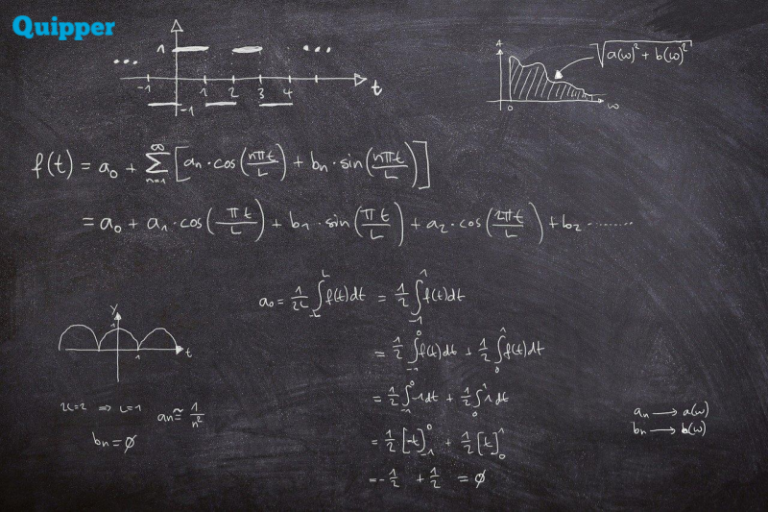 Quipper
... 1 ...
-1 1 2 3 4 t
-1
A √(a(ω)² + b(ω)²)
0 ω
f(t) = a₀ + ∑ₙ₌₁^∞ [aₙ·cos(nπt/L) + bₙ·sin(nπt/L)]
= a₀ + a₁·cos(πt/L) + b₁·sin(πt/L) + a₂·cos(2πt/L) + b₂ ........
a₀ = 1/2L ∫₋L^L f(t)dt = 1/2 ∫₋₁^1 f(t)dt
= 1/2 ∫₋₁^0 f(t)dt + 1/2 ∫₀^1 f(t)dt
= 1/2 ∫₋₁^0 -1dt + 1/2 ∫₀^1 1dt
= 1/2 [-t]₋₁^0 + 1/2 [t]₀^1
= -1/2 + 1/2 = ∅
y
1
1 t
2L=2 ⇒ L=1 aₙ ≅ 1/n²
bₙ = ∅
aₙ → a(ω)
bₙ → b(ω)